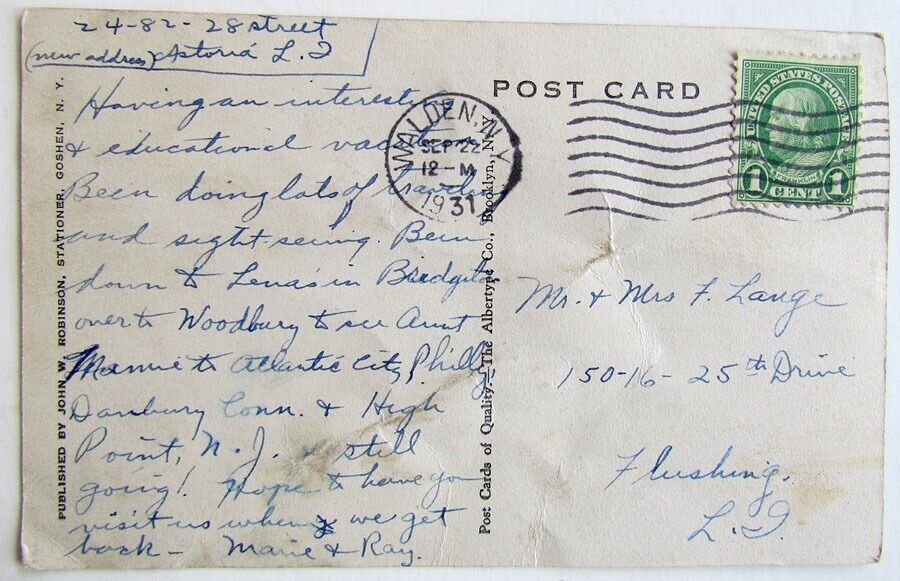 24-82-28 street
(new address) Astoria L.I
Having an interesting
& educational vacation
Been doing lots of traveling
and sight seeing. Been
down to Lena's in Bridgeton
over to Woodbury to see Aunt
Mamie to Atlantic City, Philly,
Danbury Conn. & High
Point, N. J. & still
going! Hope to have you
visit us when we get
back - Marie & Ray.
PUBLISHED BY JOHN W. ROBINSON, STATIONER, GOSHEN, N. Y.
Post Cards of Quality.—The Albertype Co., Brooklyn, N. Y.
POST CARD
WALDEN, N.Y.
SEP 22
12-M
1931
UNITED STATES POSTAGE
FRANKLIN
1 CENT 1
Mr. & Mrs F. Lange
150-16- 25th Drive
Flushing.
L.I.